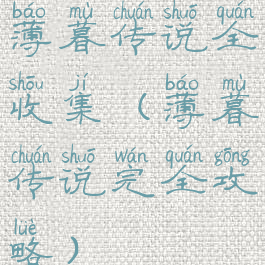 báo mù chuán shuō quán
薄暮传说全
shōu jí báo mù
收集(薄暮
chuán shuō wán quán gōng
传说完全攻
luè
略)